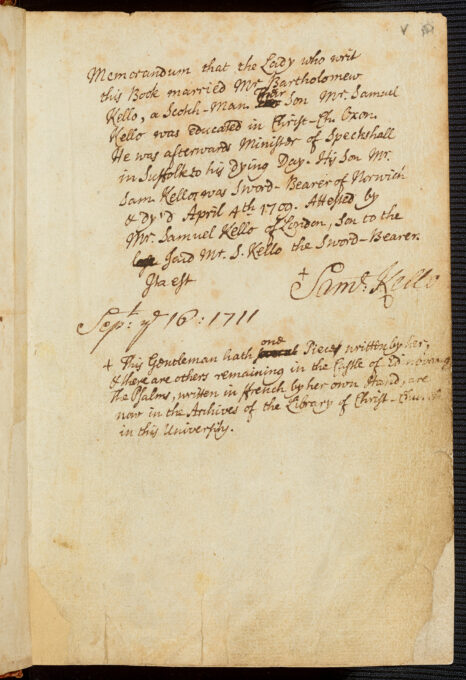 Memorandum that the Lady who writ
this Book married Mr Bartholomew
Kello, a Scotch-Man. Their Son Mr. Samuel
Kello was educated in Christ-Ch. Oxon.
He was afterwards Minister of Speckshall
in Suffolk to his Dying Day. His Son Mr.
Sam. Kello was Sword-Bearer of Norwich
& dy'd April 4th 1709. Attested by
Mr. Samuel Kello of London, Son to the
said Mr. S. Kello the Sword-Bearer.
Ita est
† Saml. Kello
Sept. ye 16: 1711
† This Gentleman hath one Piece written by her,
& there are others remaining in the Castle of Edinburg
the Psalms, written in ffrench by her own Hand, are
now in the Archives of the Library of Christ-Church
in this University.